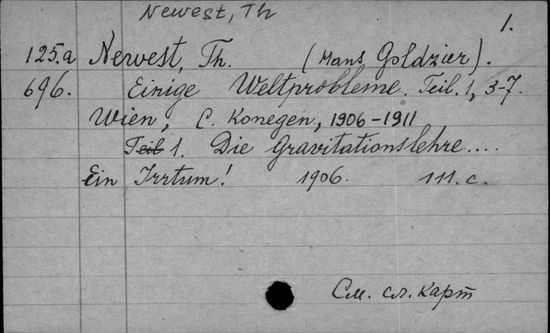 Newest, Th
1.
125.a Newest, Th. (Hans Goldzier).
696. Einige Weltprobleme. Teil. 1, 3-7.
Wien, C. Konegen, 1906-1911
Teil 1. Die Gravitationslehre....
Ein Irrtum! 1906. 111. c.
См. сл. карт